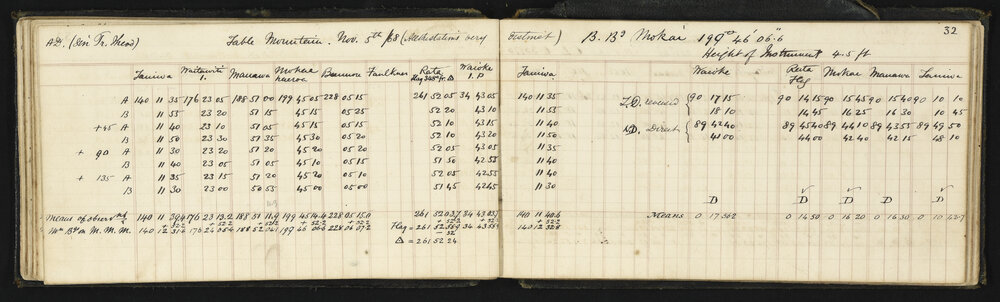 32
A.D. (Sen. Tr. Theod) Table Mountain. Nov. 5th /88 (All stations very distinct) B. Bg Mokai 199° 46' 06".6
Height of Instrument 4.5 ft
Taniwa Waitawiti 1. Manawa Mokai Bunnoe Faulkner Rata Waioke 1. P Taniwa Waioke Rata Flag Mokai Manawa Taniwa
A 140 11 35 176 23 05 188 51 00 199 45 05 228 05 15 261 52 05 34 43 05 140 11 35 90 17 15 90 14 15 90 15 45 90 15 40 90 10 10
B 11 55 23 20 51 15 45 15 05 25 52 20 43 10 11 55 18 10 14 45 16 25 16 30 10 45
+45 A 11 40 23 10 51 05 45 15 05 15 52 10 43 15 11 40 Direct 89 42 40 89 45 40 89 44 10 89 43 55 89 49 50
B 11 50 23 30 51 35 45 30 05 20 52 10 43 20 11 50 41 00 44 00 42 40 42 15 48 10
+ 90 A 11 40 23 20 51 20 45 20 05 20 52 05 43 05 11 40
B 11 40 23 05 51 05 45 10 05 15 51 50 42 55 11 40
+ 135 A 11 35 23 15 51 20 45 20 05 15 52 05 42 55 11 40
B 11 30 23 00 50 55 45 00 05 00 51 45 42 45 11 30
D D D D D
Means of observed 140 11 39.4 176 23 13.2 188 51 11.9 199 45 14.4 228 05 15.0 261 52 03.7 34 43 03.7 140 11 40.6 Means 0 17 36.2 0 14 50 0 16 20 0 16 30 0 10 42.7
+ 52.2 + 52.2 + 52.2 + 52.2
M. M. M. 140 12 31.6 176 24 05.4 188 52 04.1 199 46 06.6 228 06 07.2 Flag = 261 52 55.9 34 43 55.9 140 12 32.8
- 32
Δ = 261 52 24